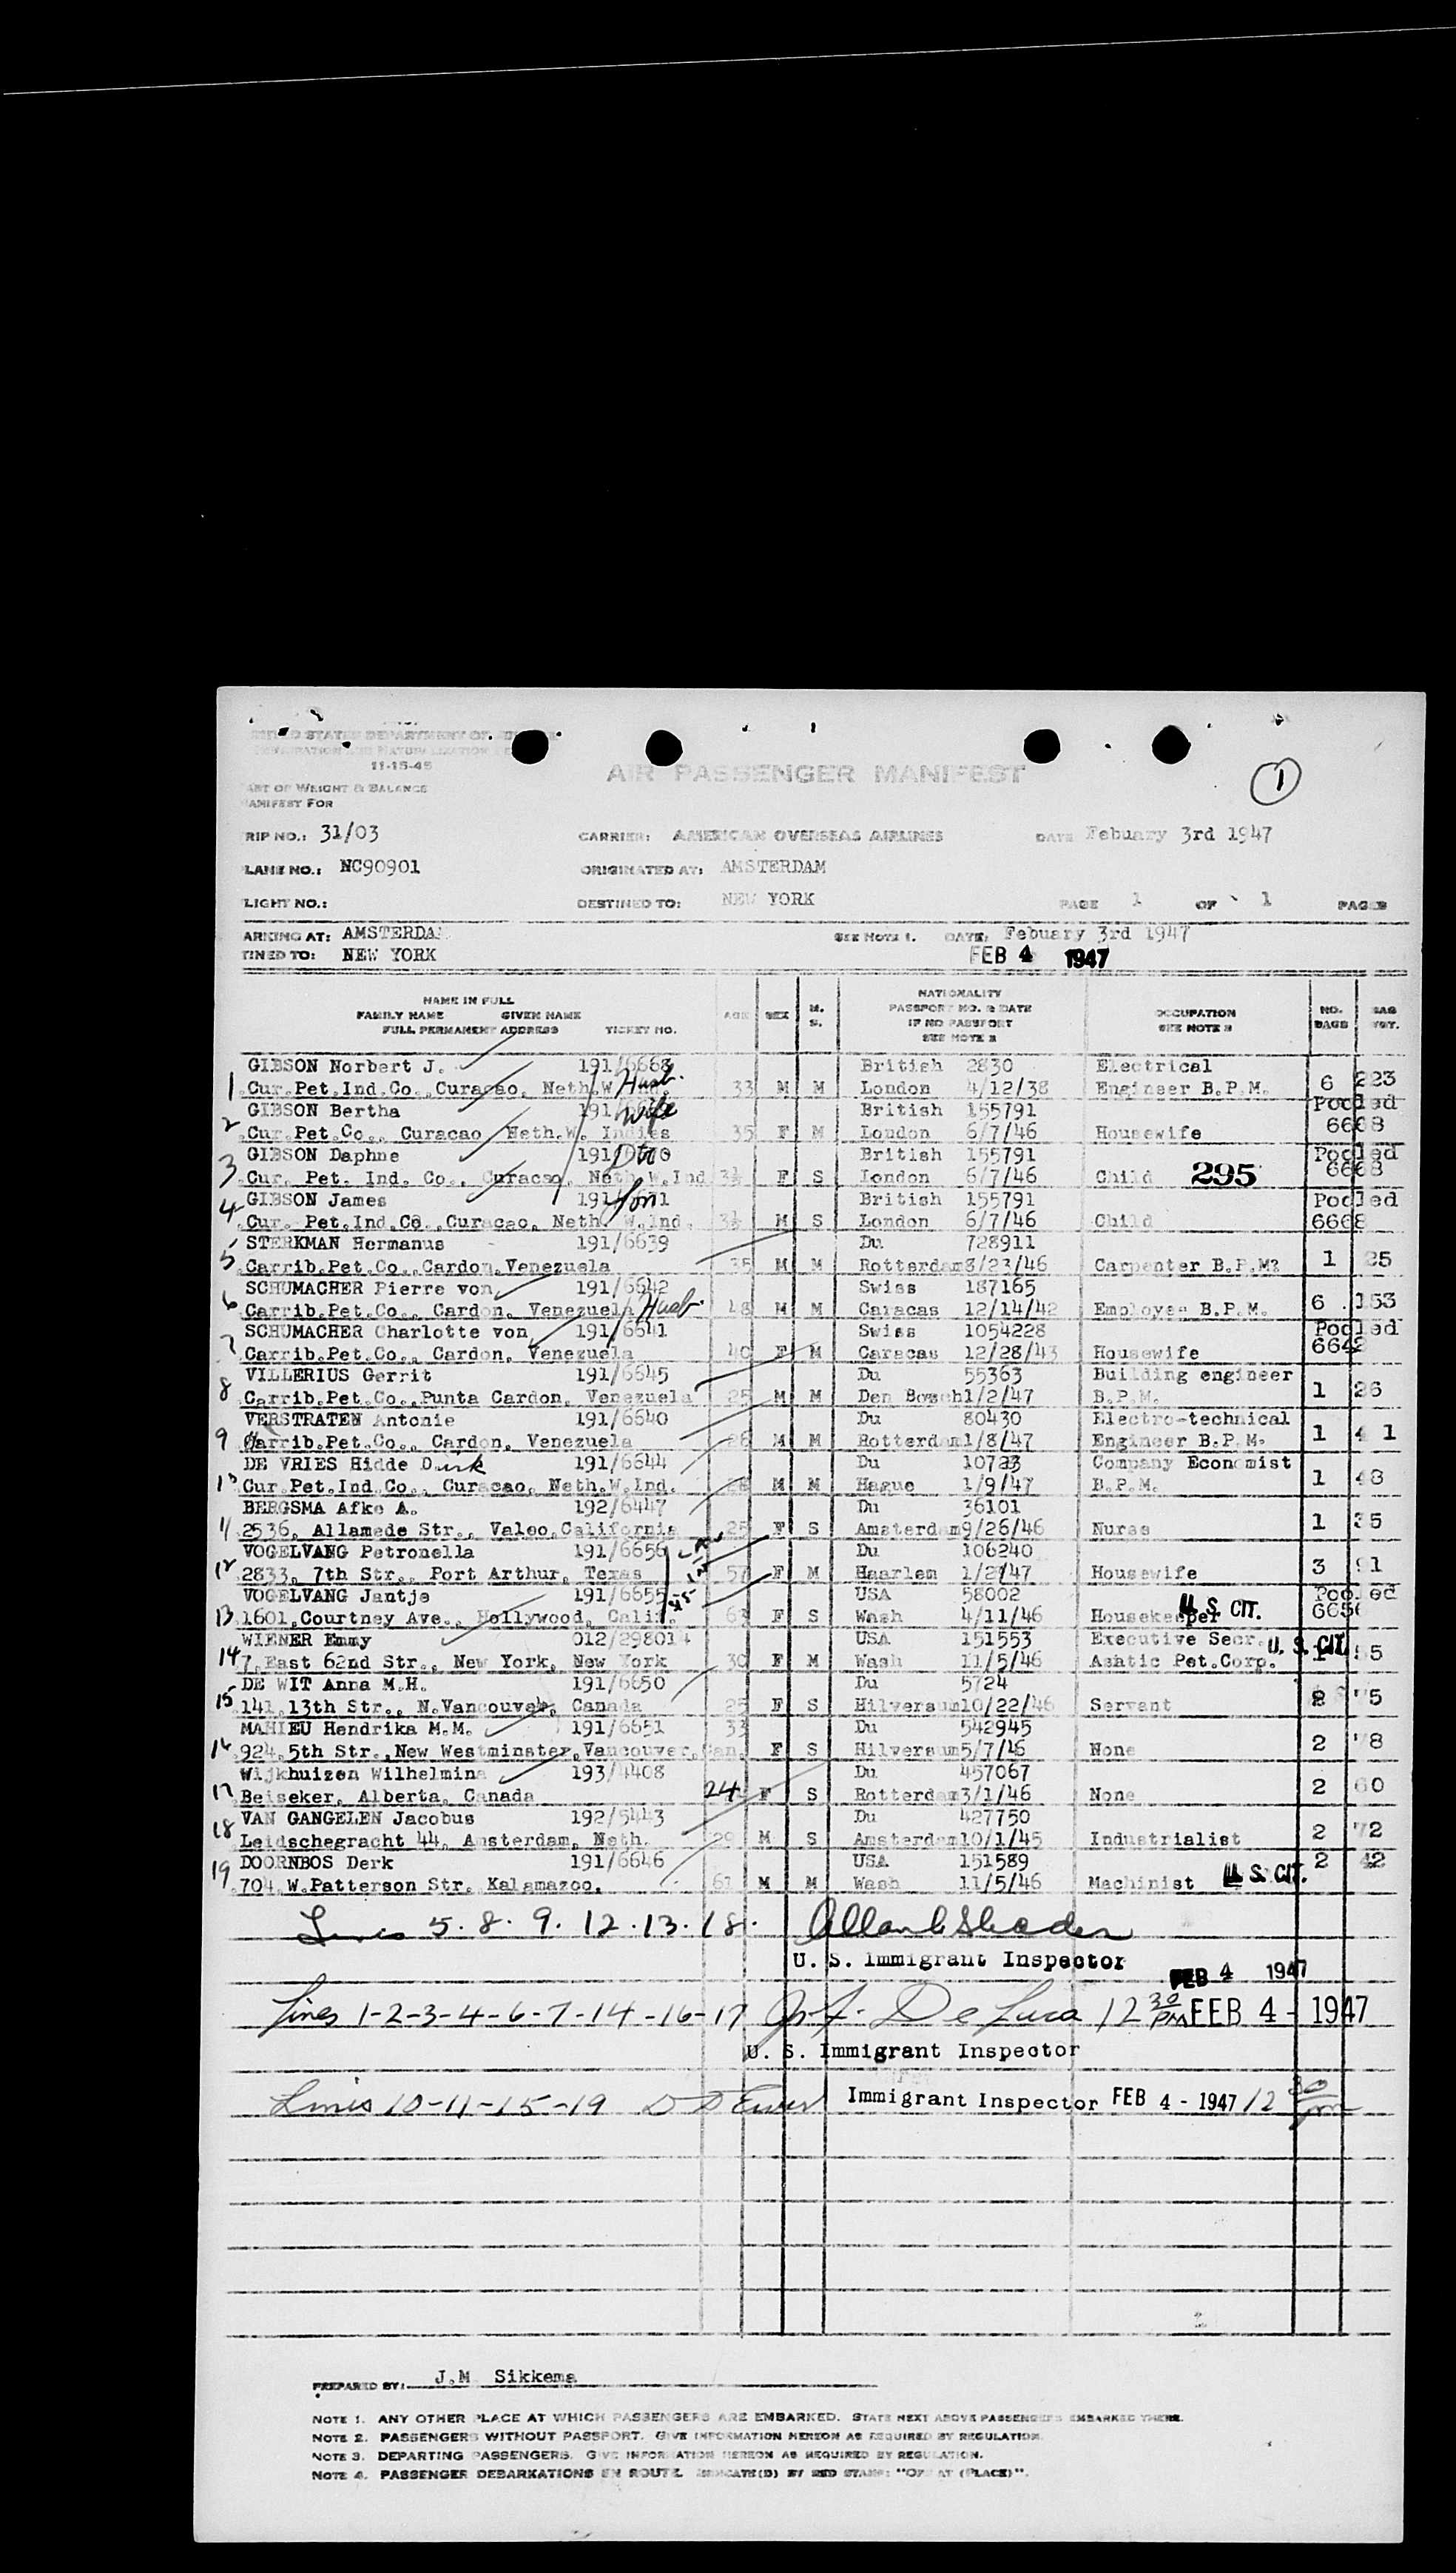 UNITED STATES DEPARTMENT OF JUSTICE
11-15-45
AIR PASSENGER MANIFEST
1
WEIGHT & BALANCE
MANIFEST FOR
RIP NO.: 31/03 CARRIER: AMERICAN OVERSEAS AIRLINES DATE Febuary 3rd 1947
LANE NO.: NC90901 ORIGINATED AT: AMSTERDAM
LIGHT NO.: DESTINED TO: NEW YORK PAGE 1 OF 1 PAGES
ARKING AT: AMSTERDAM SEE NOTE 1. DATE: Febuary 3rd 1947
TINED TO: NEW YORK FEB 4 1947
NAME IN FULL
FAMILY NAME GIVEN NAME
FULL PERMANENT ADDRESS TICKET NO.
AGE SEX M. S.
NATIONALITY
PASSPORT NO. & DATE
IF NO PASSPORT
SEE NOTE 2
OCCUPATION
SEE NOTE 3
NO. BAGS
BAG WGT.
GIBSON Norbert J. 191/6668 British 2830 Electrical
1 Cur.Pet.Ind.Co. Curacao, Neth.W. Husb. 33 M M London 4/12/38 Engineer B.P.M. 6 223
GIBSON Bertha 191/ Wife British 155791 Pooled
2 Cur.Pet.Co., Curacao Neth.W. Indies 35 F M London 6/7/46 Housewife 6668
GIBSON Daphne 191/ British 155791 Pooled
3 Cur. Pet. Ind. Co., Curacao, Neth. W.Ind 3½ F S London 6/7/46 Child 295 6668
GIBSON James 191/ Son British 155791 Pooled
4 Cur. Pet.Ind.Co .Curacao, Neth. W.Ind. 3½ M S London 6/7/46 Child 6668
STERKMAN Hermanus 191/6639 Du 728911
5 Carrib.Pet.Co., Cardon,Venezuela 35 M M Rotterdam8/23/46 Carpenter B.P.M? 1 25
SCHUMACHER Pierre von, 191/6642 Swiss 187165
6 Carrib.Pet.Co., Cardon, Venezuela Husb. 48 M M Caracas 12/14/42 Employee B.P.M. 6 153
SCHUMACHER Charlotte von 191/6641 Swiss 1054228 Pooled
7 Carrib.Pet.Co., Cardon, Venezuela 40 F M Caracas 12/28/43 Housewife 6642
VILLERIUS Gerrit 191/6645 Du 55363 Building engineer
8 Carrib.Pet.Co.,Punta Cardon, Venezuela 25 M M Den Bosch1/2/47 B.P.M. 1 26
VERSTRATEN Antonie 191/6640 Du 80430 Electro-technical
9 Carrib.Pet.Co., Cardon, Venezuela 26 M M Rotterdam1/8/47 Engineer B.P.M. 1 41
DE VRIES Hidde Dirk 191/6644 Du 10723 Company Economist
10 Cur.Pet.Ind.Co., Curacao, Neth.W.Ind. 28 M M Hague 1/9/47 B.P.M. 1 48
BERGSMA Afke A. 192/6447 Du 36101
11 2536, Allamede Str., Valeo,California 25 F S Amsterdam9/26/46 Nurse 1 35
VOGELVANG Petronella 191/6656 Du 106240
12 2833, 7th Str., Port Arthur, Texas 57 F M Haarlem 1/2/47 Housewife 3 91
VOGELVANG Jantje 191/6655 USA 58002 Pooled
13 1601,Courtney Ave., Hollywood, Calif. 63 F S Wash 4/11/46 Housekeeper U.S. CIT. 6656
WIENER Emmy 012/298014 USA 151553 Executive Secr. U.S. CIT.
14 7,East 62nd Str., New York, New York 30 F M Wash 11/5/46 Asatic Pet.Corp. 1 55
DE WIT Anna M.H. 191/6650 Du 5724
15 141,13th Str., N.Vancouver, Canada 25 F S Hilversum10/22/46 Servant 2 75
MAHIEU Hendrika M.M. 191/6651 33 Du 542945
16 924,5th Str.,New Westminster,Vancouver,Can. F S Hilversum5/7/46 None 2 78
Wijkhuizen Wilhelmina 193/4408 Du 457067
17 Beiseker, Alberta, Canada 24 F S Rotterdam3/1/46 None 2 60
VAN GANGELEN Jacobus 192/5443 Du 427750
18 Leidschegracht 44, Amsterdam, Neth. 29 M S Amsterdam10/1/45 Industrialist 2 72
DOORNBOS Derk 191/6646 USA 151589
19 704,W.Patterson Str, Kalamazoo, 61 M M Wash 11/5/46 Machinist U.S. CIT. 2 42
Lines 5. 8. 9. 12. 13. 18.
U. S. Immigrant Inspector FEB 4 1947
Lines 1-2-3-4-6-7-14-16-17 De Luca 12 30 pm FEB 4 - 1947
U. S. Immigrant Inspector
Lines 10-11-15-19 Immigrant Inspector FEB 4 - 1947 12 30 pm
PREPARED BY: J.M Sikkema
NOTE 1. ANY OTHER PLACE AT WHICH PASSENGERS ARE EMBARKED. STATE NEXT ABOVE PASSENGERS EMBARKED THERE.
NOTE 2. PASSENGERS WITHOUT PASSPORT. GIVE INFORMATION HEREON AS REQUIRED BY REGULATION.
NOTE 3. DEPARTING PASSENGERS. GIVE INFORMATION HEREON AS REQUIRED BY REGULATION.
NOTE 4. PASSENGER DEBARKATIONS EN ROUTE. INDICATE(D) BY RED STAMP: "OFF AT (PLACE)".